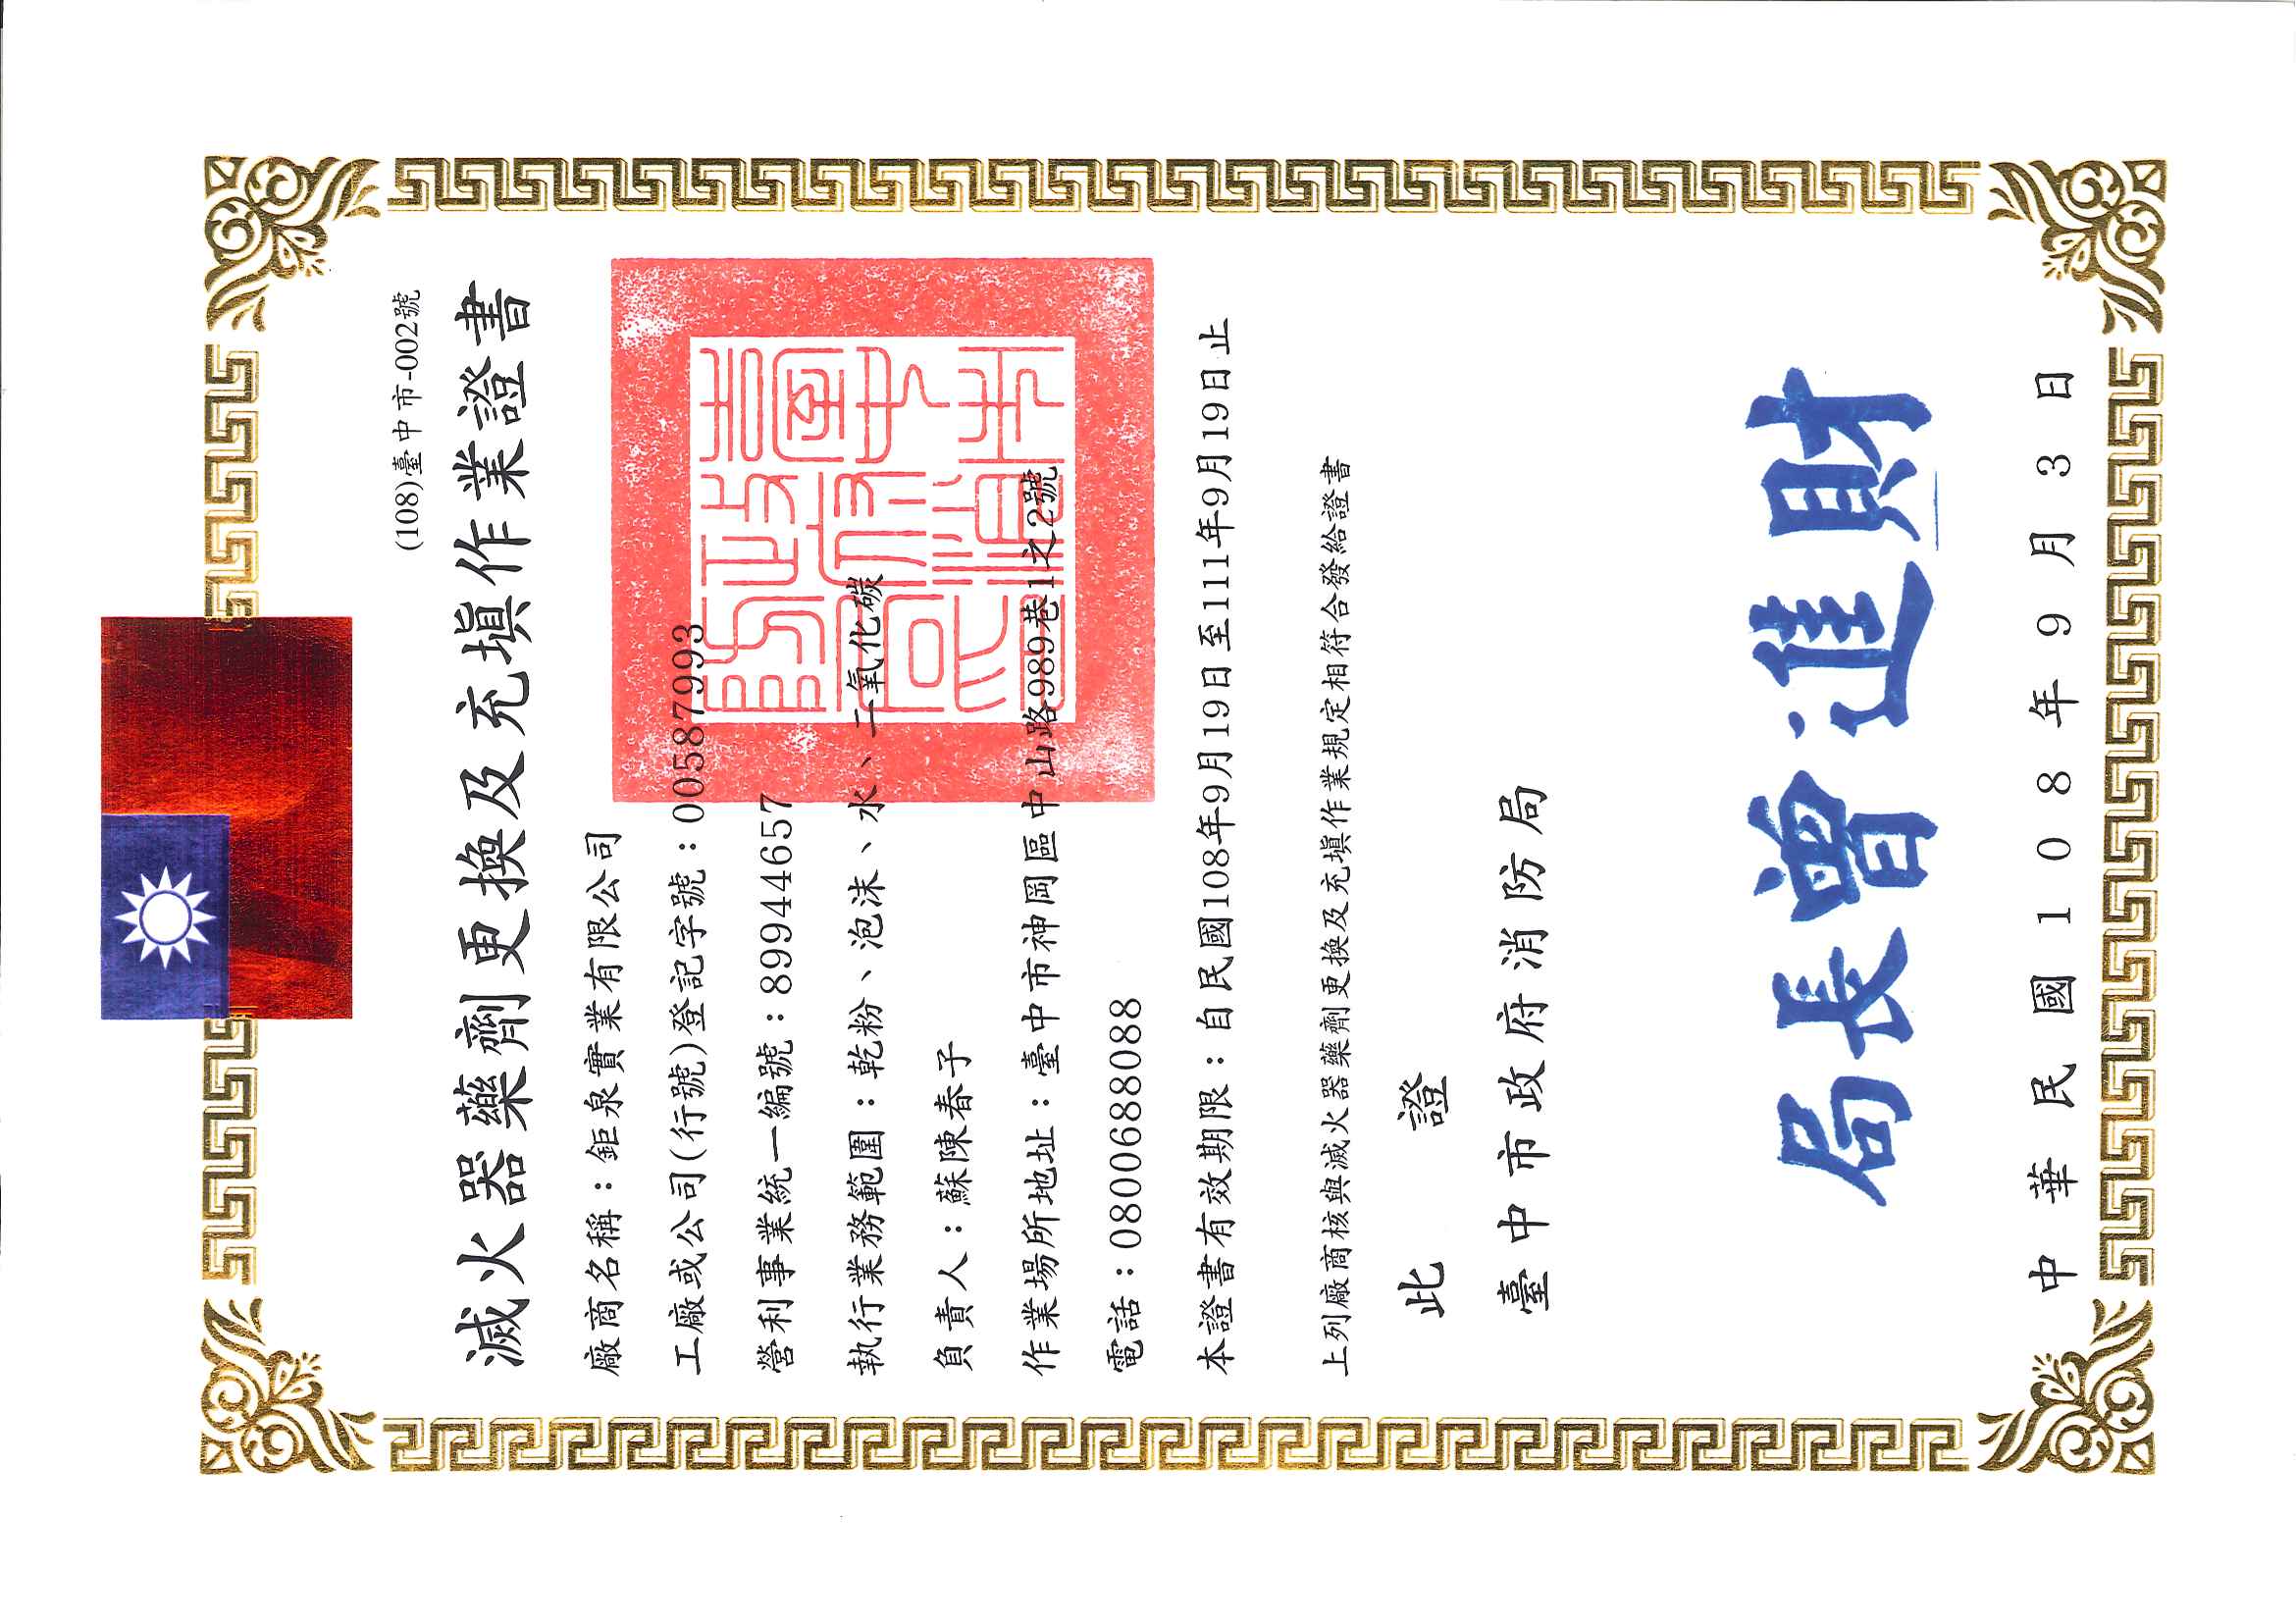 (108)臺中市-002號
滅火器藥劑更換及充填作業證書
廠商名稱：鉅泉實業有限公司
工廠或公司(行號)登記字號：005879993
營利事業統一編號：89944657
執行業務範圍：乾粉、泡沫、水、二氧化碳
負責人：蘇陳春子
作業場所地址：臺中市神岡區中山路989巷1之2號
電話：0800688088
本證書有效期限：自民國108年9月19日至111年9月19日止
上列廠商核與滅火器藥劑更換及充填作業規定相符合發給證書
此證
臺中市政府消防局
局長曾進財
中華民國108年9月3日